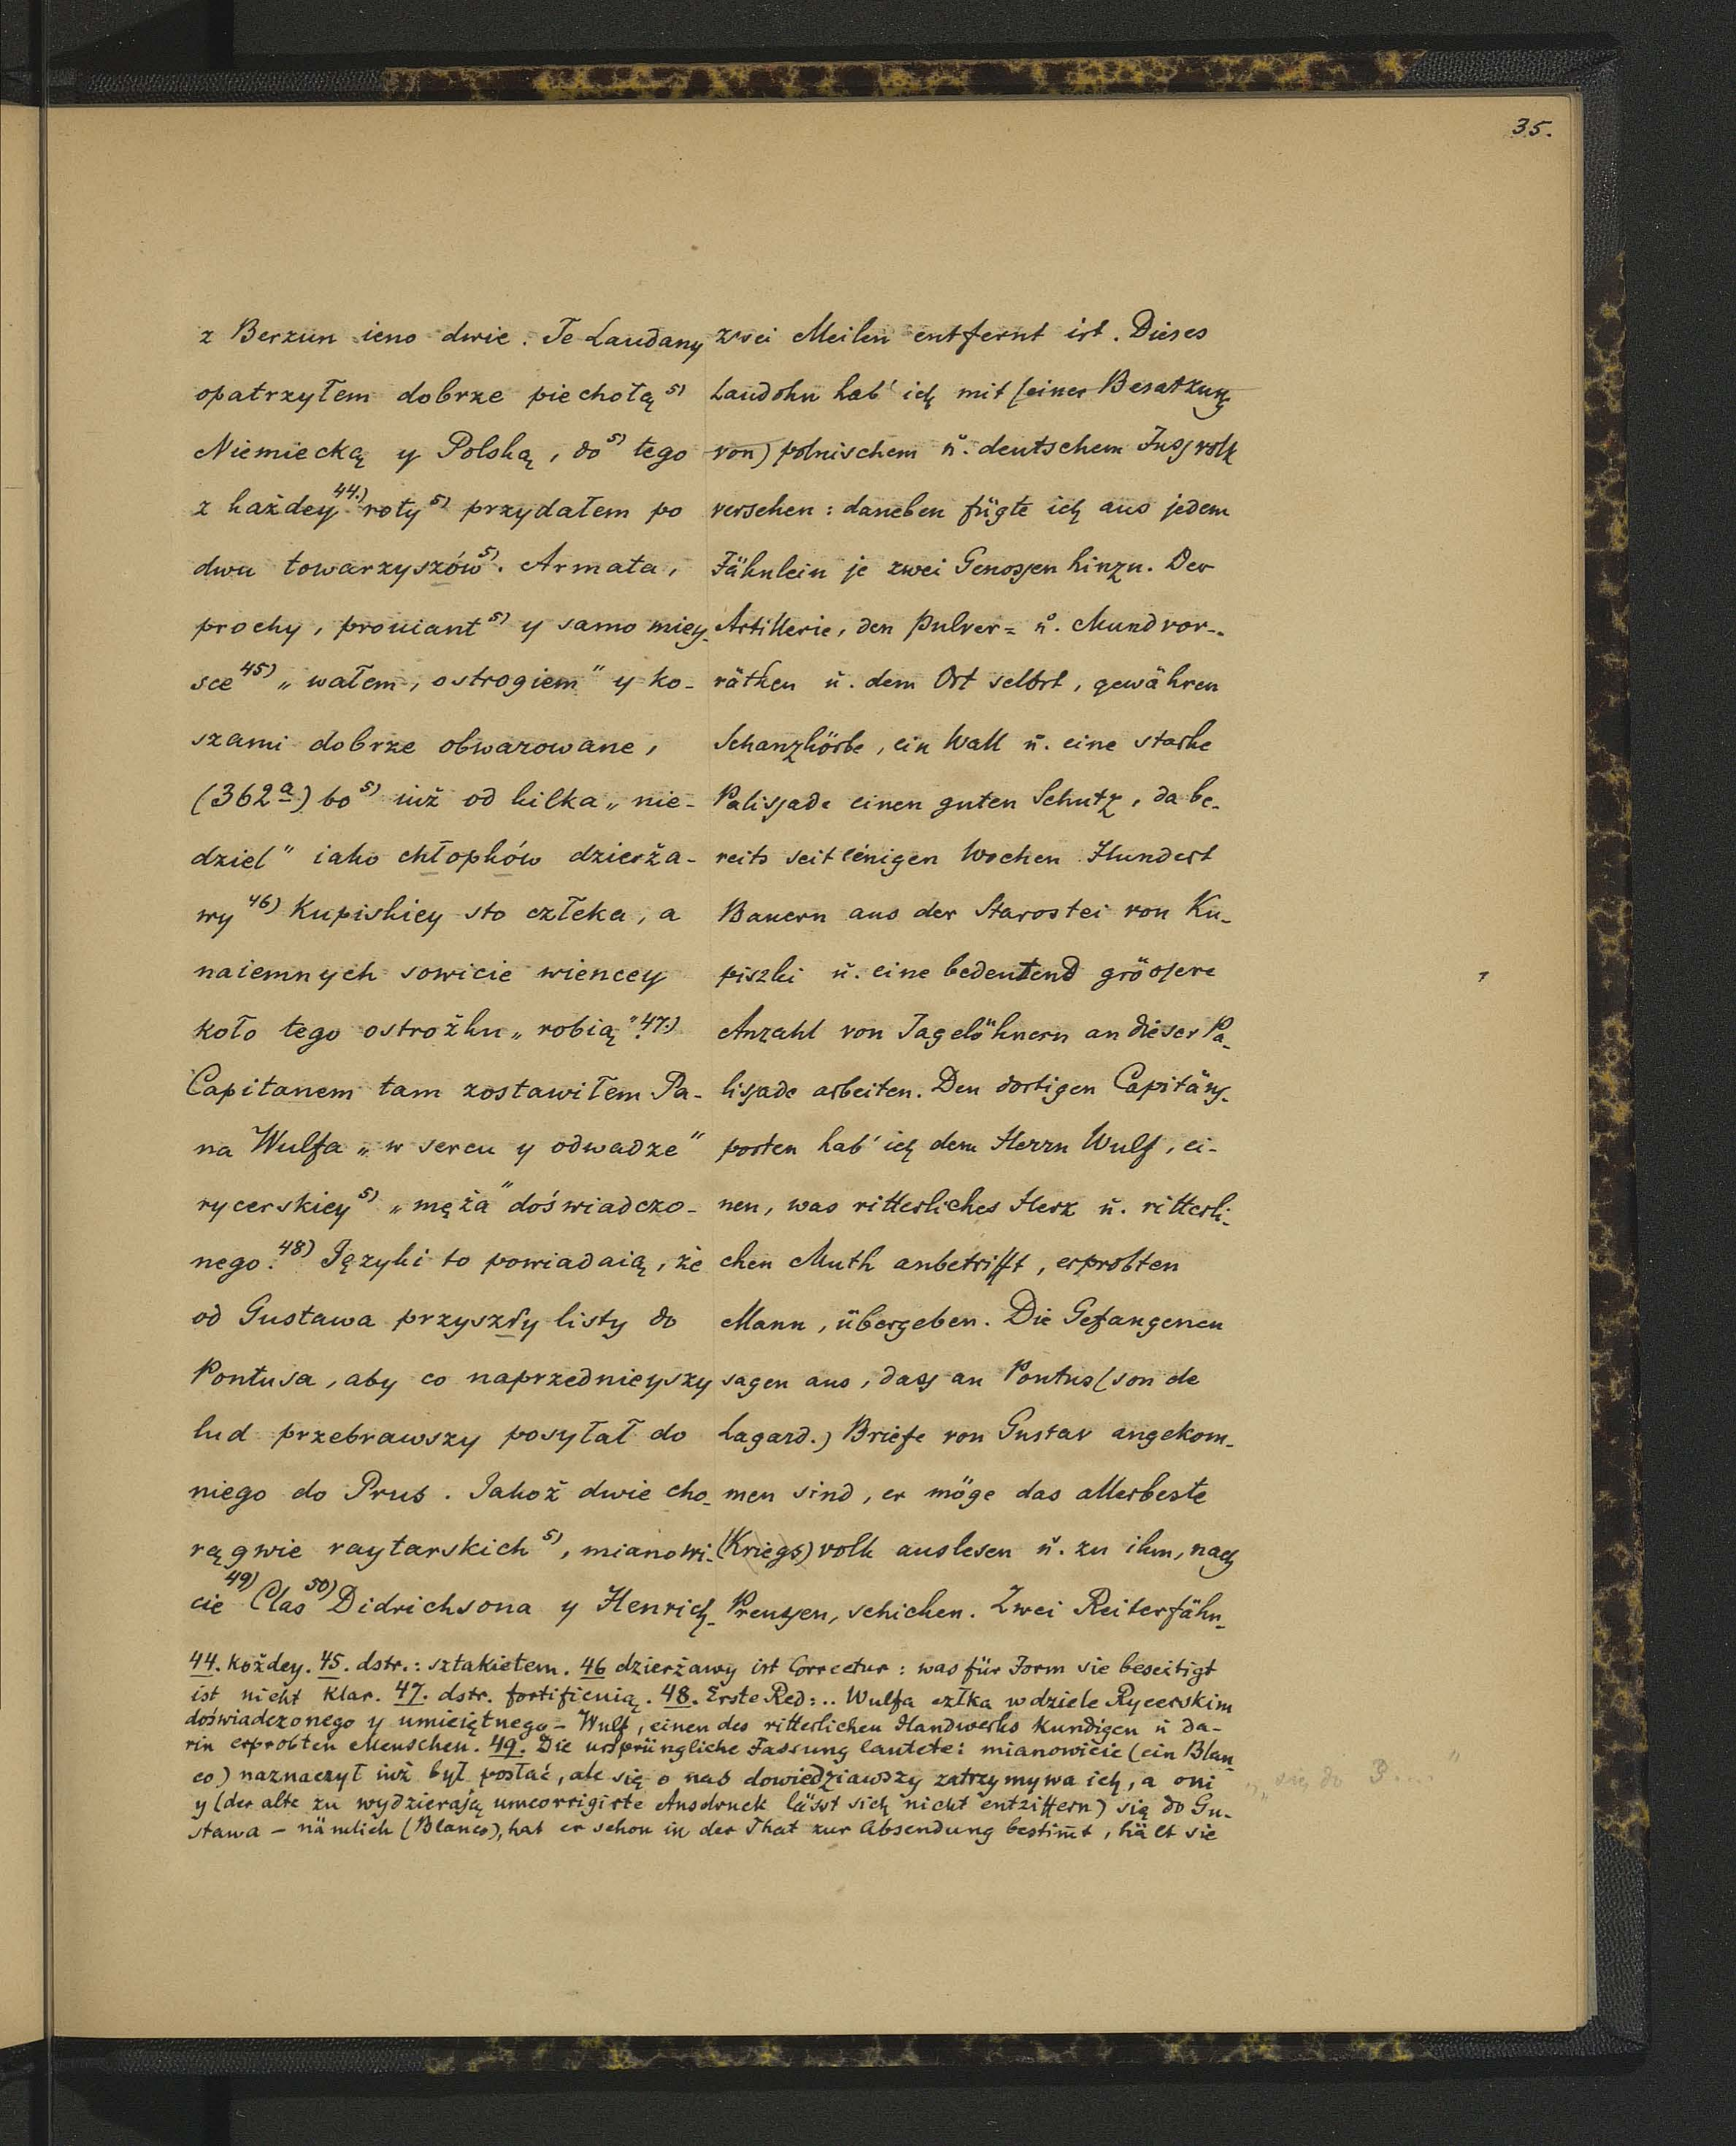 35.
z Berzun ieno dwie. Te Laudany
opatrzyłem dobrze piechotą 5)
Niemiecką y Polską, do 5) tego
z każdey 44.) roty 5) przydałem po
dwu towarzyszów 5). Armata,
prochy, prouiant 5) y samo miey-
sce 45) „wałem, ostrogiem" y ko-
szami dobrze obwarowane,
(362a) bo 5) iuż od kilka „nie-
dziel" iako chłopków dzierża-
wy 46) Kupiskiey sto człeka, a
naiemnych sowicie wiencey
koło tego ostrożku „robią". 47.)
Capitanem tam zostawiłem Pa-
na Wulfa „w sercu y odwadze"
rycerskiey 5) „męża" doświadczo-
nego. 48) Języki to powiadaią, że
od Gustawa przyszły listy do
Pontusa, aby co naprzednieyszy
lud przebrawszy posyłał do
niego do Prus. Jakoż dwie cho-
rągwie raytarskich 5), mianowi-
cie 49) Clas 50) Didrichsona y Henrich-
zwei Meilen entfernt ist. Dieses
Laudohn hab' ich mit (einer Besatzung
von) polnischem u. deutschem Fussvolk
versehen: daneben fügte ich aus jedem
Fähnlein je zwei Genossen hinzu. Der
Artillerie, den Pulver= u. Mundvor-
räthen u. dem Ort selbst, gewähren
Schanzkörbe, ein Wall u. eine starke
Palissade einen guten Schutz, da be-
reits seit einigen Wochen Hundert
Bauern aus der Starostei von Ku-
piszki u. eine bedeutend grössere
Anzahl von Tagelöhnern an dieser Pa-
lissade arbeiten. Den dortigen Capitäns-
posten hab' ich dem Herrn Wulf, ei-
nen, was ritterliches Herz u. ritterli-
chen Muth anbetrifft, erprobten
Mann, übergeben. Die Gefangenen
sagen aus, dass an Pontus (von de
Lagard.) Briefe von Gustav angekom-
men sind, er möge das allerbeste
(Kriegs)volk auslesen u. zu ihm, nach
Preussen, schicken. Zwei Reiterfähn-
44. każdey. 45. dstr.: sztakietem. 46 dzierżawy ist Correctur: was für Form sie beseitigt
ist nicht klar. 47. dstr. fortificuią. 48. Erste Red:.. Wulfa człka w dziele Rycerskim
doświadczonego y umieiętnego - Wulf, einen des ritterlichen Handwerks kundigen u da-
rin erprobten Menschen. 49. Die ursprüngliche Fassung lautete: mianowicie (ein Blan-
co) naznaczył iuż był posłać, ale się o nas dowiedziawszy zatrzymywa ich, a oni
y (der alte zu wydzierają umcorrigirte Ausdruck lässt sich nicht entziffern) się do Gu-
stawa - nämlich (Blanco), hat er schon in der That zur Absendung bestimt, hält sie
się do